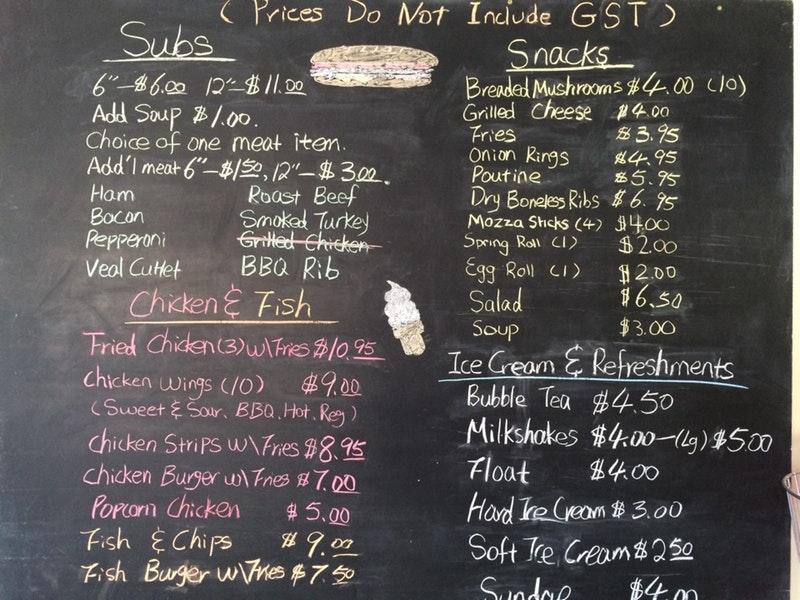 ( Prices Do Not Include GST )
Subs
6"-$6.00 12"-$11.00
Add Soup $1.00.
Choice of one meat item.
Add'l meat 6"-$1.50, 12"-$3.00.
Ham Roast Beef
Bacon Smoked Turkey
Pepperoni Grilled Chicken
Veal Cutlet BBQ Rib
Chicken & Fish
Fried Chicken(3) w\Fries $10.95
Chicken Wings (10) $9.00
(Sweet & Sour, BBQ, Hot, Reg)
Chicken Strips w\Fries $8.95
Chicken Burger w\Fries $7.00
Popcorn Chicken $5.00
Fish & Chips $9.00
Fish Burger w\Fries $7.50
Snacks
Breaded Mushrooms $4.00 (10)
Grilled Cheese $4.00
Fries $3.95
Onion Rings $4.95
Poutine $5.95
Dry Boneless Ribs $6.95
Mozza Sticks (4) $4.00
Spring Roll (1) $2.00
Egg Roll (1) $2.00
Salad $6.50
Soup $3.00
Ice Cream & Refreshments
Bubble Tea $4.50
Milkshakes $4.00-(Lg) $5.00
Float $4.00
Hard Ice Cream $3.00
Soft Ice Cream $2.50
Sundae $4.00